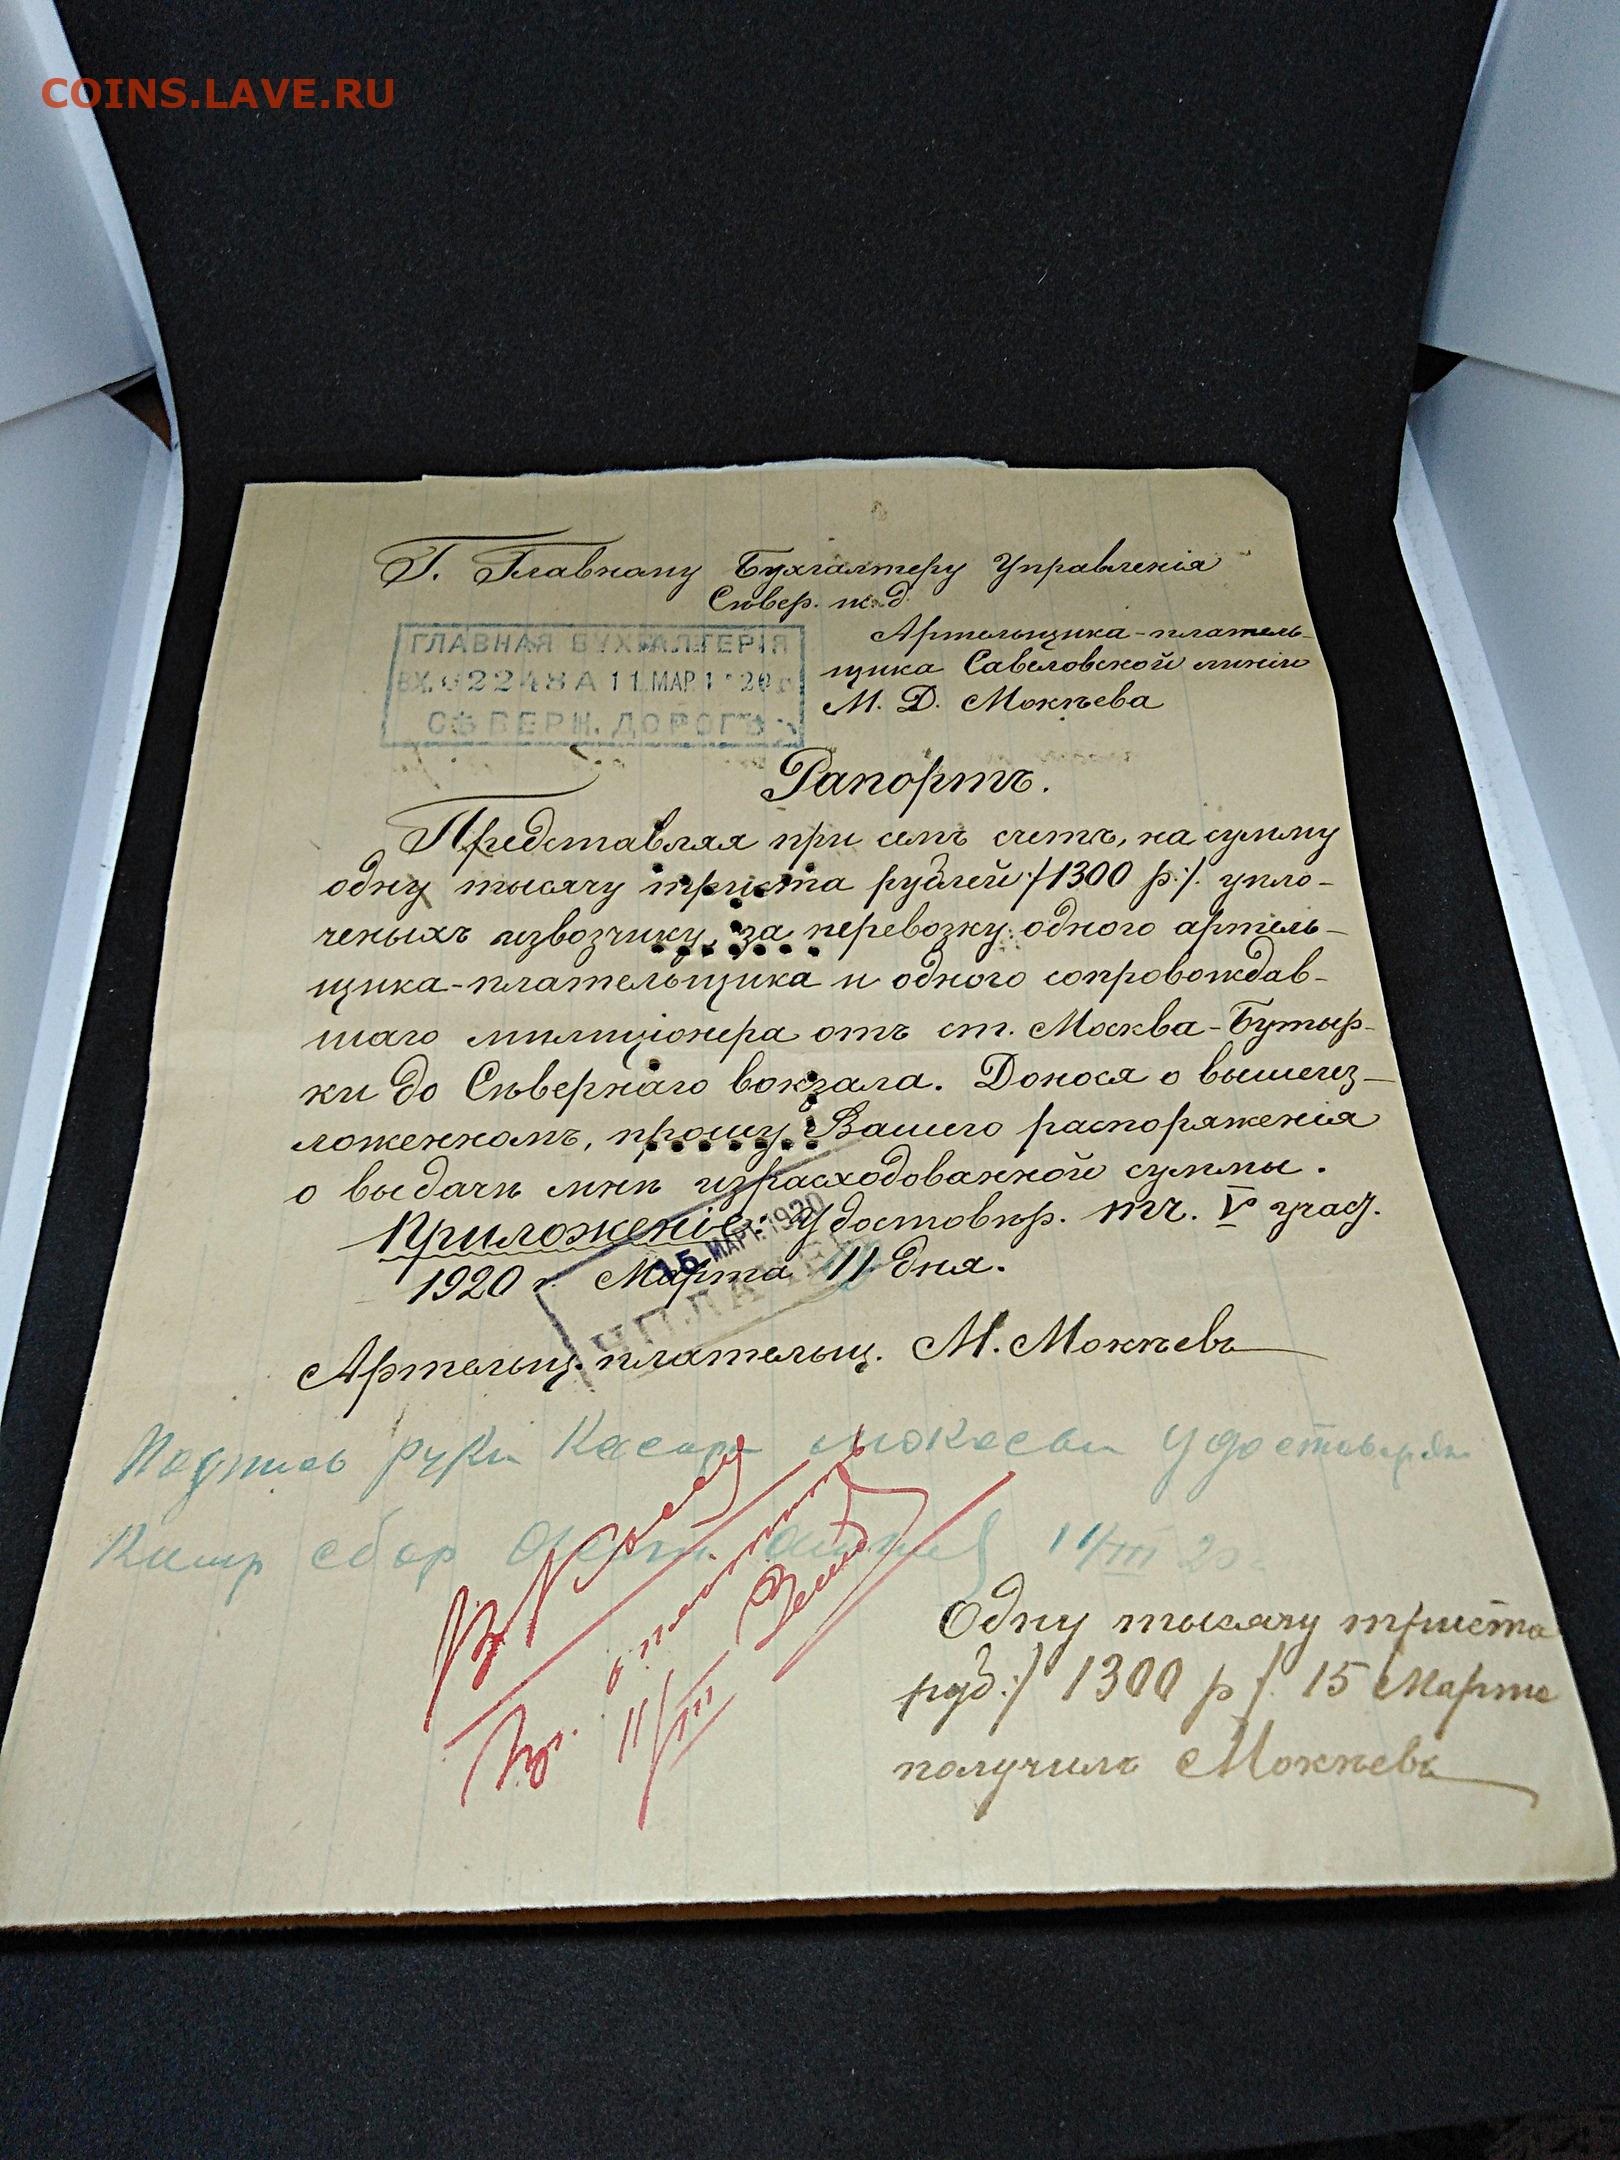 COINS.LAVE.RU
Г. Главному Бухгалтеру Управленія
Сѣвер. ж. д.
Артельщика-платель-
щика Савеловской линіи
М. Д. Мокѣева
ГЛАВНАЯ БУХГАЛТЕРІЯ
ВХ. 02248А 11 МАР. 1920 г.
СѢВЕРН. ДОРОГЪ
Рапортъ.
Представляя при семъ счетъ, на сумму
одну тысячу триста рублей :/1300 р:/. упло-
ченыхъ извозчику, за перевозку одного артель-
щика-плательщика и одного сопровождав-
шаго милиціонера отъ ст. Москва-Бутыр-
ки до Сѣвернаго вокзала. Донося о вышеиз-
ложенномъ, прошу Вашего распоряженія
о выдачѣ мнѣ израсходованной суммы.
Приложеніе: Удостовѣр. тч. V учас.
15 МАР. 1920
1920 г. Марта 11 дня.
Артельщ. плательщ. М. Мокѣевъ
Подпись руки Мокеева удостоверяю
сбор 11/III 20
В Кассу
11/III
Одну тысячу триста
руб :/ 1300 р /. 15 Марта
получилъ Мокѣевъ